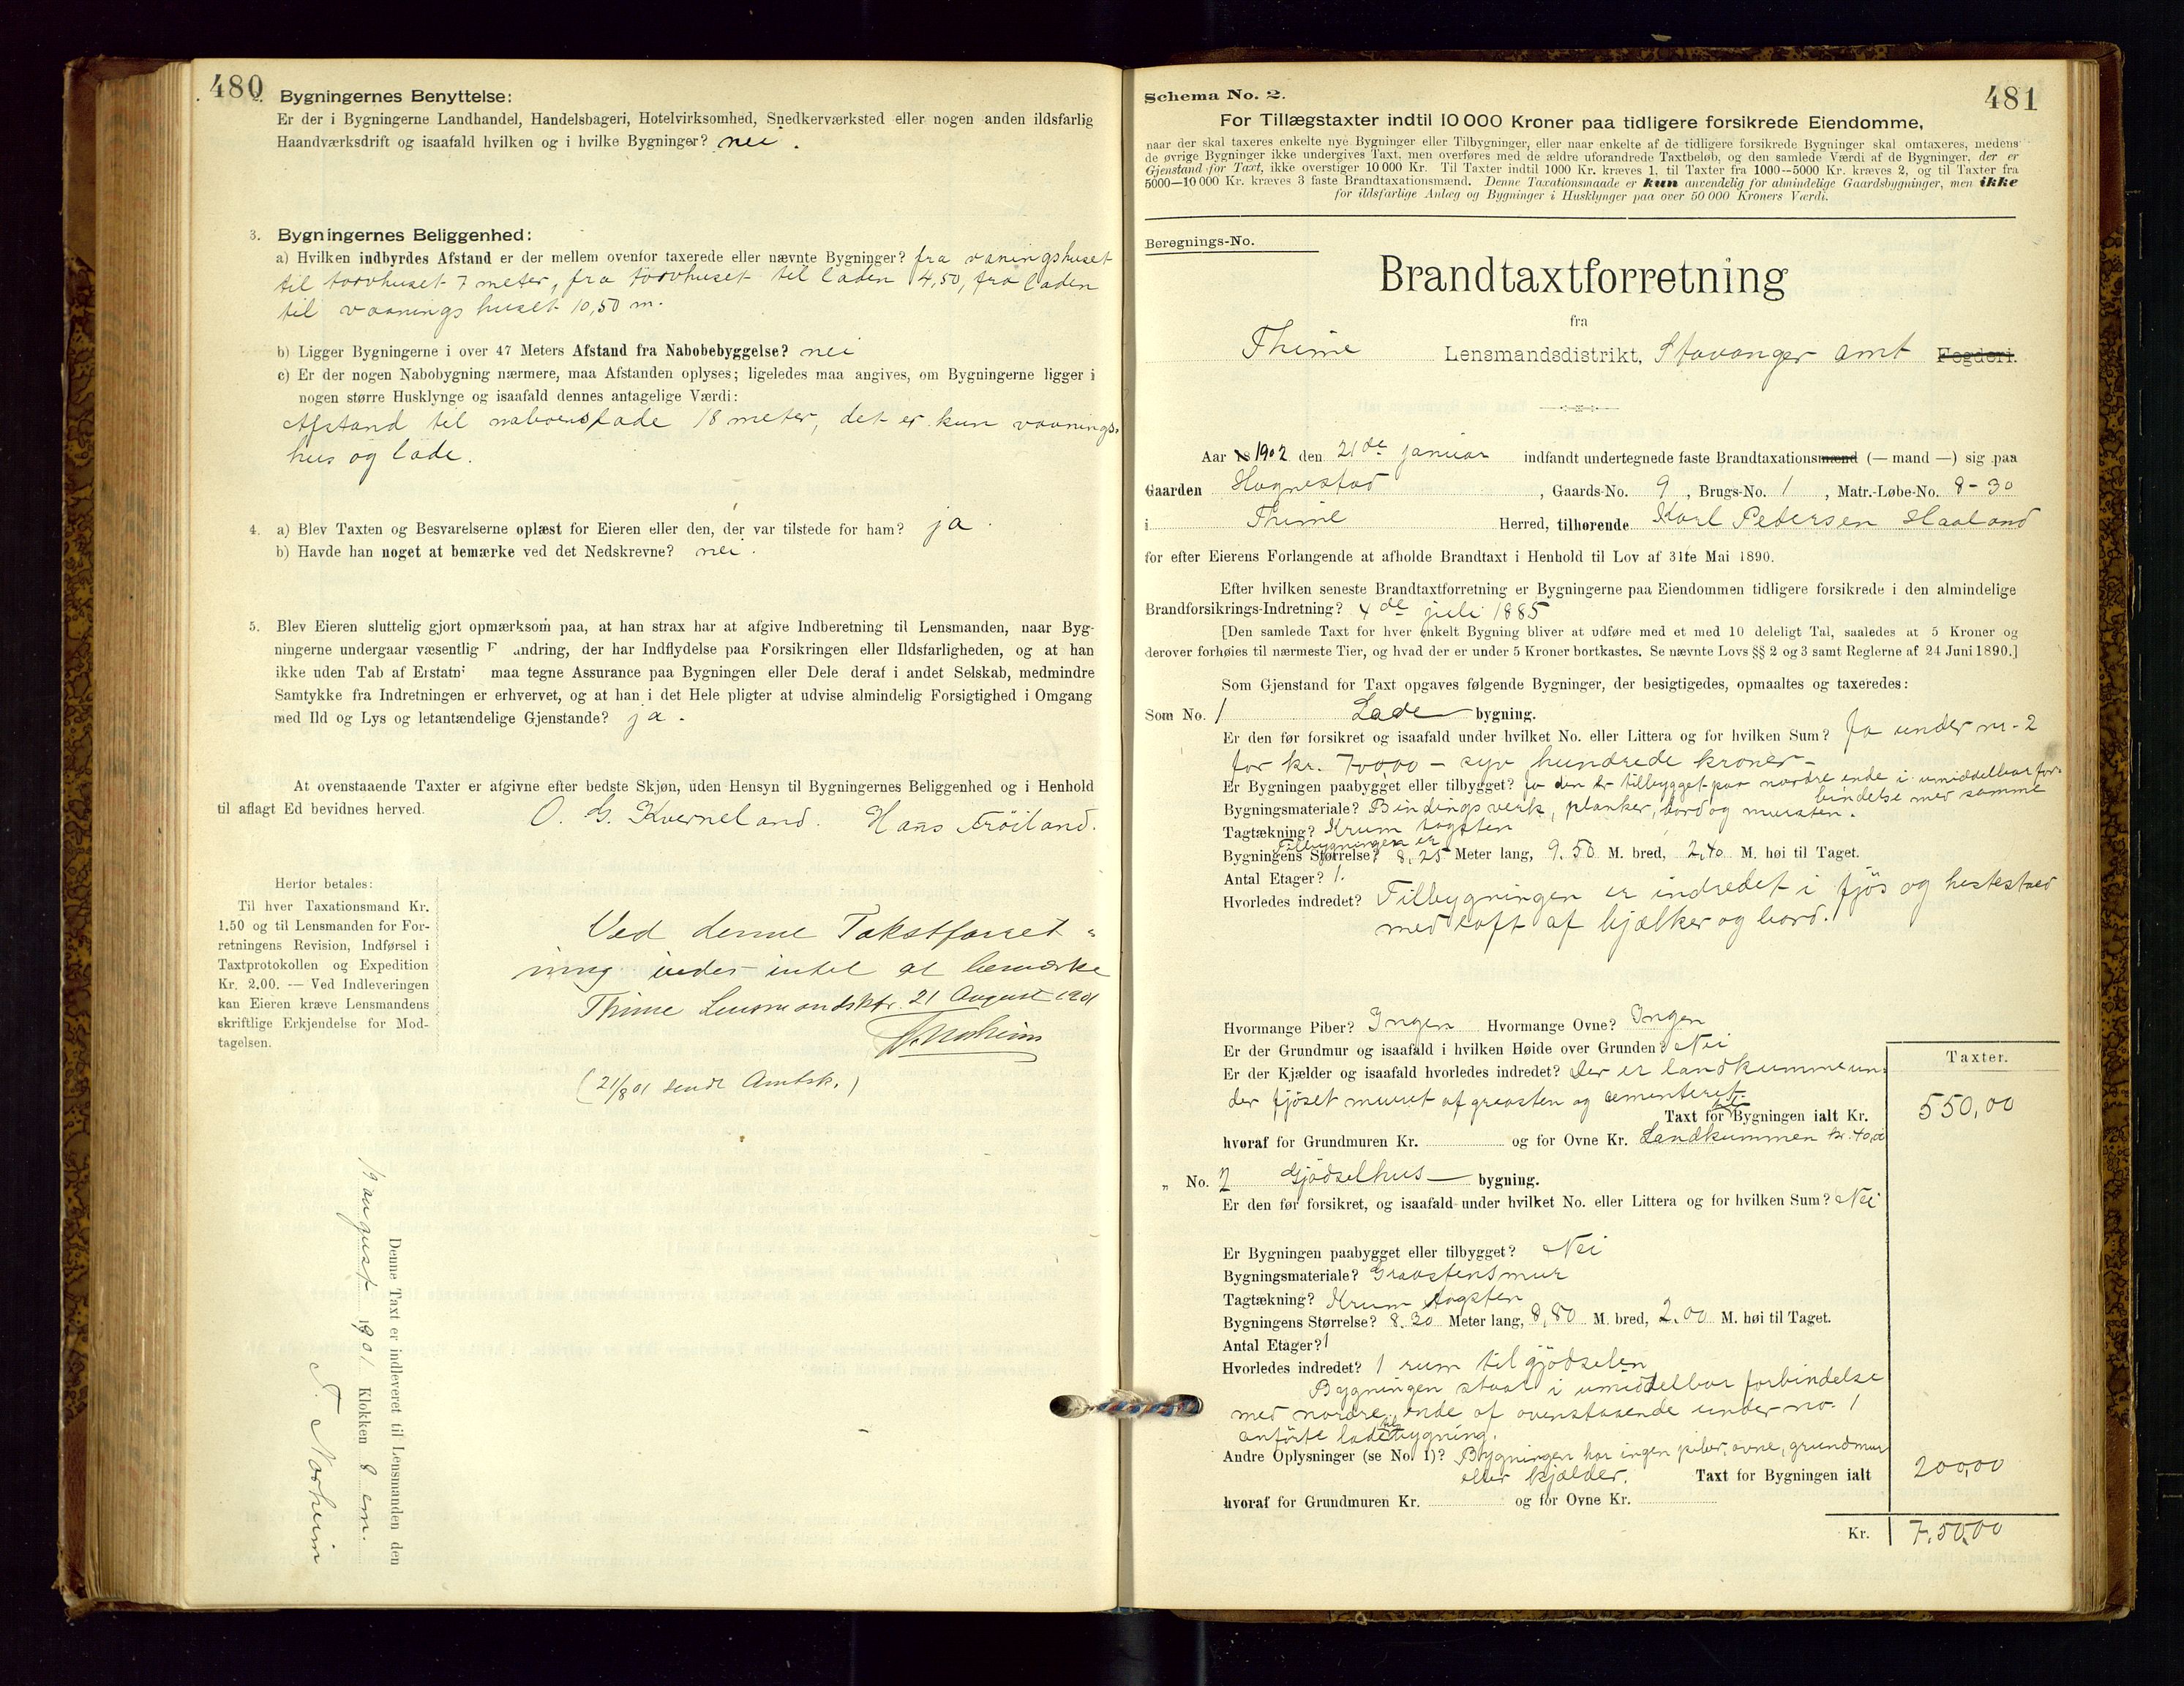 480
2. Bygningernes Benyttelse:
Er der i Bygningerne Landhandel, Handelsbageri, Hotelvirksomhed, Snedkerværksted eller nogen anden ildsfarlig
Haandværksdrift og isaafald hvilken og i hvilke Bygninger? nei.
3. Bygningernes Beliggenhed:
a) Hvilken indbyrdes Afstand er der mellem ovenfor taxerede eller nævnte Bygninger? fra vaaningshuset
til torvhuset 7 meter, fra torvhuset til laden 14,50, fra laden
til vaaningshuset 10,50 m.
b) Ligger Bygningerne i over 47 Meters Afstand fra Nabobebyggelse? nei
c) Er der nogen Nabobygning nærmere, maa Afstanden oplyses; ligeledes maa angives, om Bygningerne ligger i
nogen større Husklynge og isaafald dennes antagelige Værdi:
Afstand til naboens lade 18 meter, det er kun vaanings-
hus og lade.
4. a) Blev Taxten og Besvarelserne oplæst for Eieren eller den, der var tilstede for ham? ja.
b) Havde han noget at bemærke ved det Nedskrevne? nei.
5. Blev Eieren sluttelig gjort opmærksom paa, at han strax har at afgive Indberetning til Lensmanden, naar Byg-
ningerne undergaar væsentlig F andring, der har Indflydelse paa Forsikringen eller Ildsfarligheden, og at han
ikke uden Tab af Erstatn maa tegne Assurance paa Bygningen eller Dele deraf i andet Selskab, medmindre
Samtykke fra Indretningen er erhvervet, og at han i det Hele pligter at udvise almindelig Forsigtighed i Omgang
med Ild og Lys og letantændelige Gjenstande? ja.
At ovenstaaende Taxter er afgivne efter bedste Skjøn, uden Hensyn til Bygningernes Beliggenhed og i Henhold
til aflagt Ed bevidnes herved. O. G. Kverneland. Hans Fröiland.
Herfor betales:
Til hver Taxationsmand Kr.
1.50 og til Lensmanden for For-
retningens Revision, Indførsel i
Taxtprotokollen og Expedition
Kr. 2.00. — Ved Indleveringen
kan Eieren kræve Lensmandens
skriftlige Erkjendelse for Mod-
tagelsen.
Ved denne Takstforret-
ning vides intet at bemærke
Thime Lensmandsktr. 21 August 1901
(21/8 01 sendt Amtsk.)
Denne Taxt er indleveret til Lensmanden den
august 1901 Klokken 8 em.
T. Norheim
481
Schema No. 2.
For Tillægstaxter indtil 10 000 Kroner paa tidligere forsikrede Eiendomme,
naar der skal taxeres enkelte nye Bygninger eller Tilbygninger, eller naar enkelte af de tidligere forsikrede Bygninger skal omtaxeres, medens
de øvrige Bygninger ikke undergives Taxt, men overføres med de ældre uforandrede Taxtbeløb, og den samlede Værdi af de Bygninger, der er
Gjenstand for Taxt, ikke overstiger 10 000 Kr. Til Taxter indtil 1000 Kr. kræves 1, til Taxter fra 1000—5000 Kr. kræves 2, og til Taxter fra
5000—10 000 Kr. kræves 3 faste Brandtaxationsmænd. Denne Taxationsmaade er kun anvendelig for almindelige Gaardsbygninger, men ikke
for ildsfarlige Anlæg og Bygninger i Husklynger paa over 50 000 Kroners Værdi.
Beregnings-No.
Brandtaxtforretning
fra
Thime Lensmandsdistrikt, Stavanger amt Fogderi.
Aar 1902 den 21de januar indfandt undertegnede faste Brandtaxationsmænd (— mand —) sig paa
Gaarden Hognestad, Gaards-No. 9, Brugs-No. 1, Matr.-Løbe-No. 8-30
i Thime Herred, tilhørende Karl Petersen Haaland
for efter Eierens Forlangende at afholde Brandtaxt i Henhold til Lov af 31te Mai 1890.
Efter hvilken seneste Brandtaxtforretning er Bygningerne paa Eiendommen tidligere forsikrede i den almindelige
Brandforsikrings-Indretning? 4de juli 1885
[Den samlede Taxt for hver enkelt Bygning bliver at udføre med et med 10 deleligt Tal, saaledes at 5 Kroner og
derover forhøies til nærmeste Tier, og hvad der er under 5 Kroner bortkastes. Se nævnte Lovs §§ 2 og 3 samt Reglerne af 24 Juni 1890.]
Som Gjenstand for Taxt opgaves følgende Bygninger, der besigtigedes, opmaaltes og taxeredes:
Som No. 1 Lade bygning.
Er den før forsikret og isaafald under hvilket No. eller Littera og for hvilken Sum? Ja under nr. 2
for kr. 700,00 - syv hundrede kroner -
Er Bygningen paabygget eller tilbygget? Ja den er tilbygget paa nordre ende i umiddelbar for-
bindelse med samme
Bygningsmateriale? Bindingsverk, planker, bord og mursten.
Tagtækning? Krum tagsten
Tilbygningen er
Bygningens Størrelse? 8,25 Meter lang, 9.50 M. bred, 2,40 M. høi til Taget.
Antal Etager? 1.
Hvorledes indredet? Tilbygningen er indredet i fjös og hestestald
med loft af bjælker og bord.
Hvormange Piber? Ingen Hvormange Ovne? Ingen
Er der Grundmur og isaafald i hvilken Høide over Grunden? Nei
Er der Kjælder og isaafald hvorledes indredet? Der er landkumme un-
der fjöset muret af graasten og cementeret.
Taxter.
Taxt for til Bygningen ialt Kr. 550,00
hvoraf for Grundmuren Kr. og for Ovne Kr. Landkummen kr. 40,00
" No. 2 Gjödselhus bygning.
Er den før forsikret, og isaafald under hvilket No. eller Littera og for hvilken Sum? Nei
Er Bygningen paabygget eller tilbygget? Nei
Bygningsmateriale? Graastensmur
Tagtækning? Krum tagsten
Bygningens Størrelse? 8.20 Meter lang, 8,80 M. bred, 2.00 M. høi til Taget.
Antal Etager? 1
Hvorledes indredet? 1 rum til gjödselen
Bygningen staar i umiddelbar forbindelse
med nordre ende af ovenstaaende under no. 1
anförte lade tilbygning.
Andre Oplysninger (se No. 1)? Bygningen har ingen piber, ovne, grundmur
eller kjælder. Taxt for Bygningen ialt 200,00
hvoraf for Grundmuren Kr. og for Ovne Kr.
Kr. 750,00